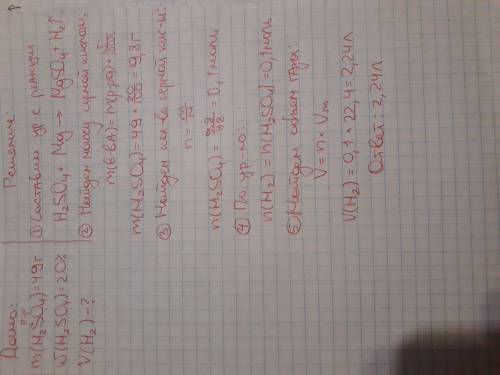 Дано:
m р-р (H₂SO₄)=49г
W(H₂SO₄)=20%
V(H₂)-?
Решение:
① Составим ур-е реакции
H₂SO₄ + Mg → MgSO₄ + H₂↑
② Найдем массу серной кислоты:
m(в-ва)=m(р-ра)×
m(H₂SO₄)=49×20/100=9,8г
③ Найдем кол-во серной кис-ы:
n=m/M
n(H₂SO₄)=9,8/98=0,1моль
④ По ур-ю:
n(H₂)=n(H₂SO₄)=0,1моль
⑤ Найдем объем газа:
V=n×Vm
V(H₂)=0,1×22,4=2,24л
Ответ: 2,24л